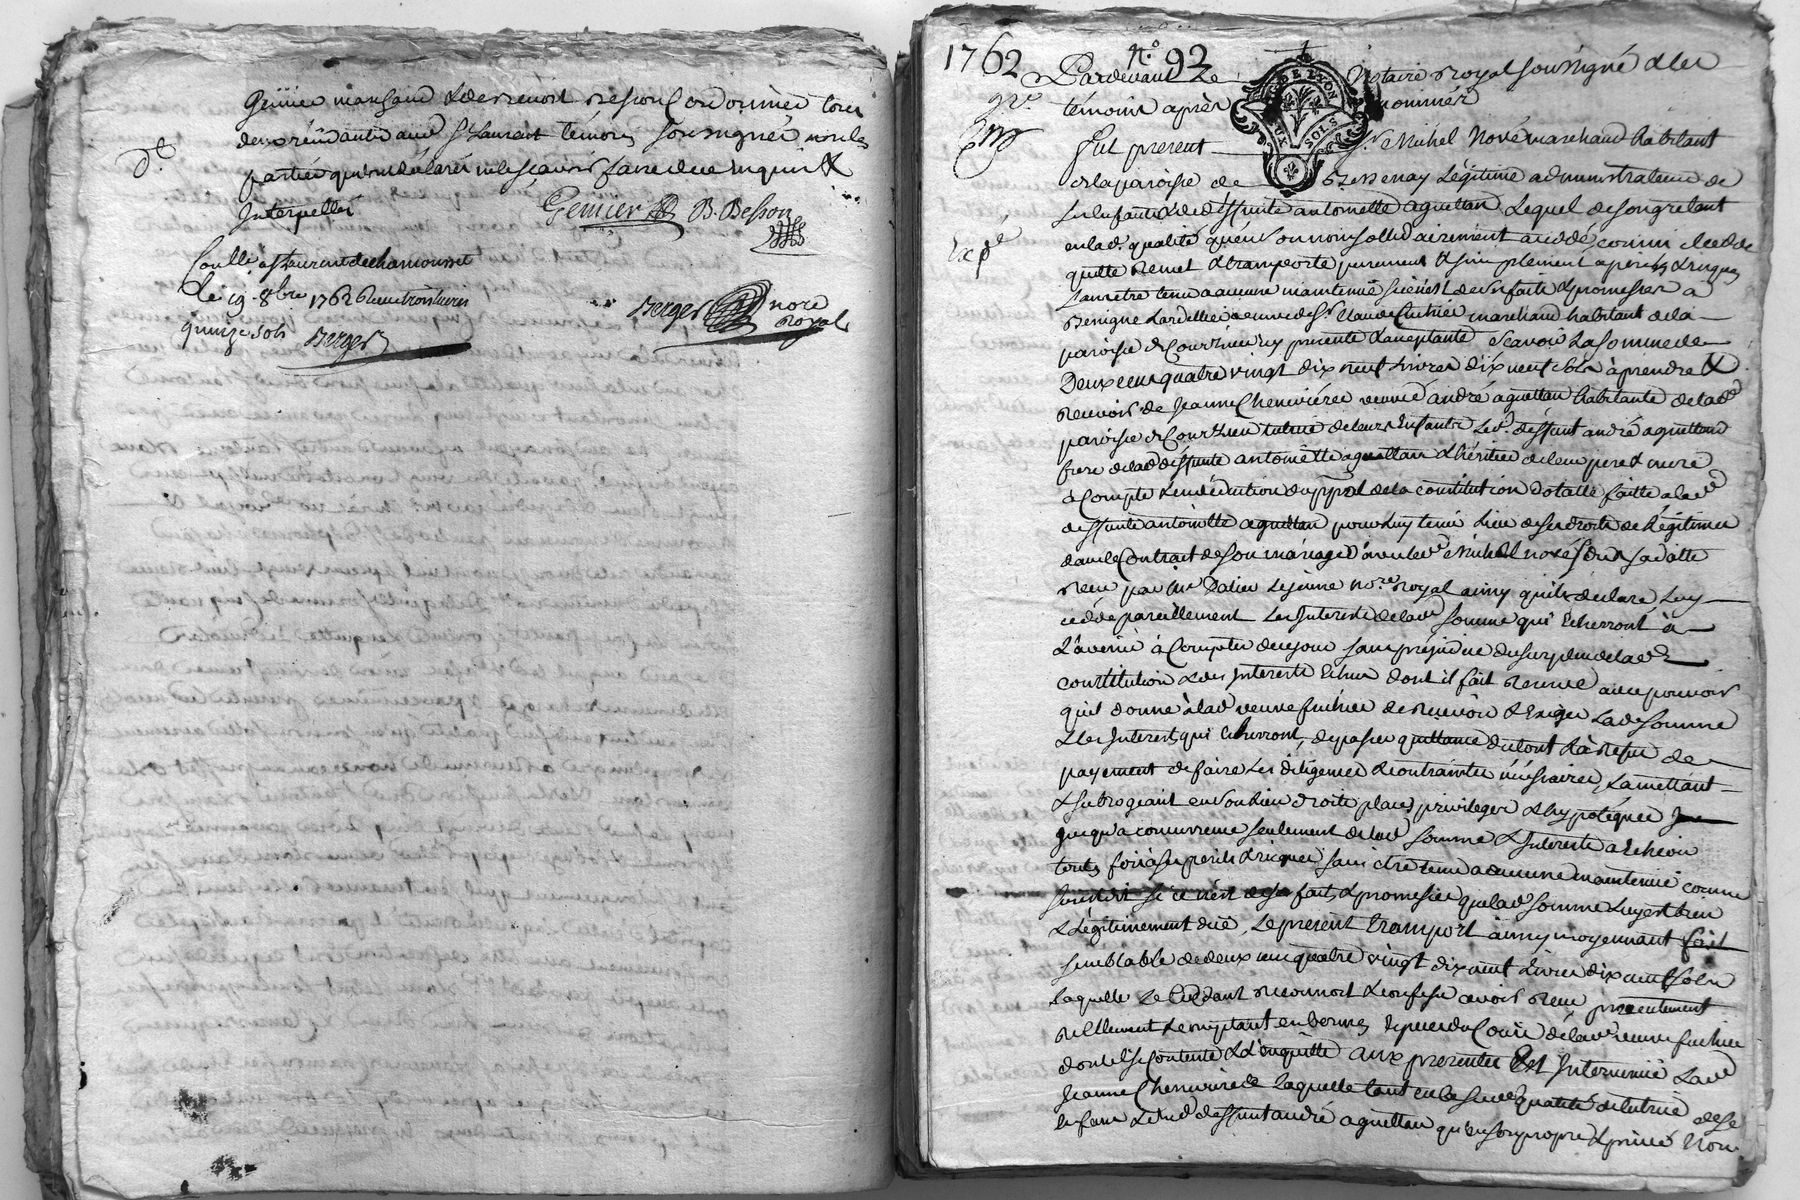 marchand & de Benoist Besson Cordonnier tous
deux résidants aud St Laurent témoins soussignés non les
parties qui ont déclaré ne le sçavoir faire de ce enquis &
Interpellés
Genier B. Besson
Conllé a St Laurent de chamousset
Le 19. 8bre 1762
quinze sols Berger
Berger nore
Royal
1762 N.o 92
Pardevant Le Notaire Royal soussigné & les
témoins après nommés
DE LYON
DEUX SOLS
Fut present Sr. Michel Nové marchand habitant
de la paroisse de Bessenay Légitime administrateur de
ses Enfants & de deffunte antoinette aguettan Lequel de son gré tant
en lad. qualité qu'en son nom sollidairement a cédé comme il cedde
quitte remet & transporte purement & simplement a périls & risques
sans etre tenu a aucune maintenue si ce n'est de ses faits & promesses a
Benigne Lardellier veuve de Sr Claude fuchier marchand habitant de la
paroisse de Courzieu icy présente & acceptante Scavoir La somme de
Deux cens quatre vingt dix neuf Livres dix neuf sols à prendre &
recevoir de Jeanne Chenevière veuve d'andré aguettan habitante de lad.
paroisse de Courzieu tutrice de leurs Enfants Led. deffunt andré aguettand
frere de lad deffunte antoinette aguettan & héritier de leur pere & mere
à Compte & en déduction du ppal de la constitution dotalle faitte a lad
deffunte antoinette aguettan pour luy tenir Lieu de ses droits de Légitimes
dans le Contrat de son mariage d'avec led Michel nové sous sa datte
receu par Me Dalier Lejeune nore. royal ainsy qu'ils déclare Luy
cedde pareillement Les Interests de lad somme qui Echerront à
L'avenir à Compter de ce jour sans préjudice du surplus de lad
constitution & des Interests Echus dont il fait reserve avec pouvoir
qu'il donne à lad veuve fuchier de recevoir & Exiger Lade Somme
& les Interests qui Echerront, de passer quittance du tout & à refus de
payement de faire Les diligences & contraintes nécéssaires, La mettant
& subrogeant en son Lieu droits places privileges & hypotéques Jus
quesqu'a concurrence seulement de lad somme & Interests a Echeoir
touts fois à ses perils & risques sans etre tenu a aucune maintenue comme
susdit si ce n'est de ses faits & promesses que lad somme Luy est bien
& Légitimement düe, Le present transport ainsy moyennant fait
semblable de deux cens quatre vingt dix neuf Livres dix neuf sols
Laquelle Le Ceddant reconnoit & confesse avoir receu presentement
réellement & comptant en bonnes Especes du Cours de lad veuve fuchier
dont il se Contente & L'enquitte aux presentes Est Intervenüe Lad
Jeanne Chenevière Laquelle tant en sa susd qualité de tutrice de ses
Enfans & dud deffunt andré aguettan qu'en son propre & privé Nom